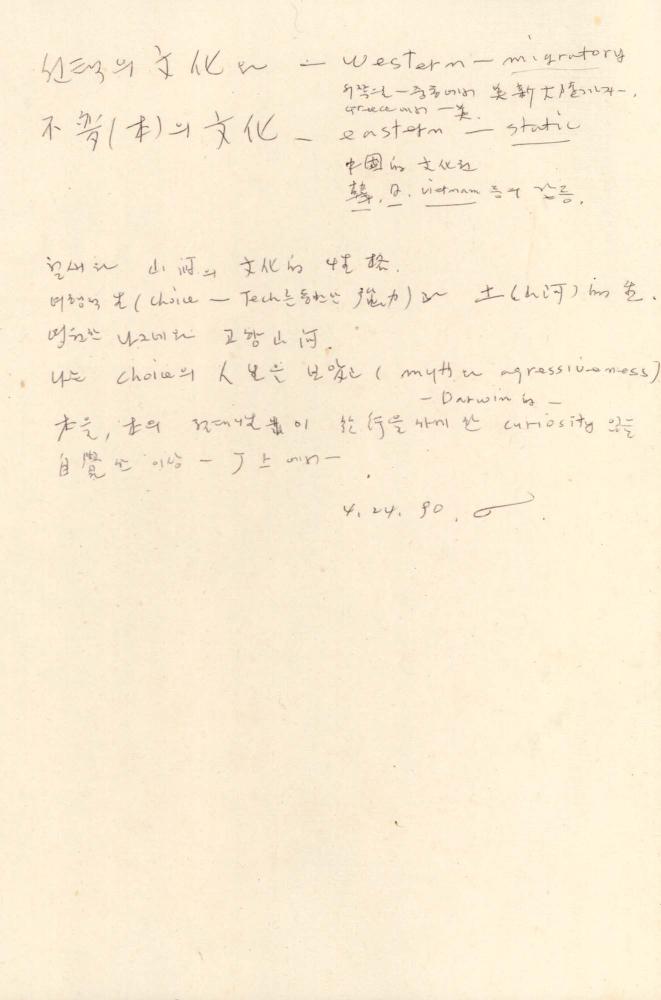 선택의 文化와 — western — migratory
서쪽으로 — 중동에서 美新大陸까지 —,
Greece에서 — 英.
不変(本)의 文化 — eastern — static
中國的 文化권
韓, 日, vietnam 등의 갈등.
철새와 山河의 文化的 性格.
여행的 生(choice — Tech를 통한 強力)과 土(山河)的 生.
영원한 나그네와 고향山河.
나는 choice의 人生을 보았고 ( myth와 agressiveness)
— Darwin的 —
求을, 土의 이 旅行을 하게 한 curiosity 있음
自覺한 이상 — J 上에서 —
4. 24. 90.